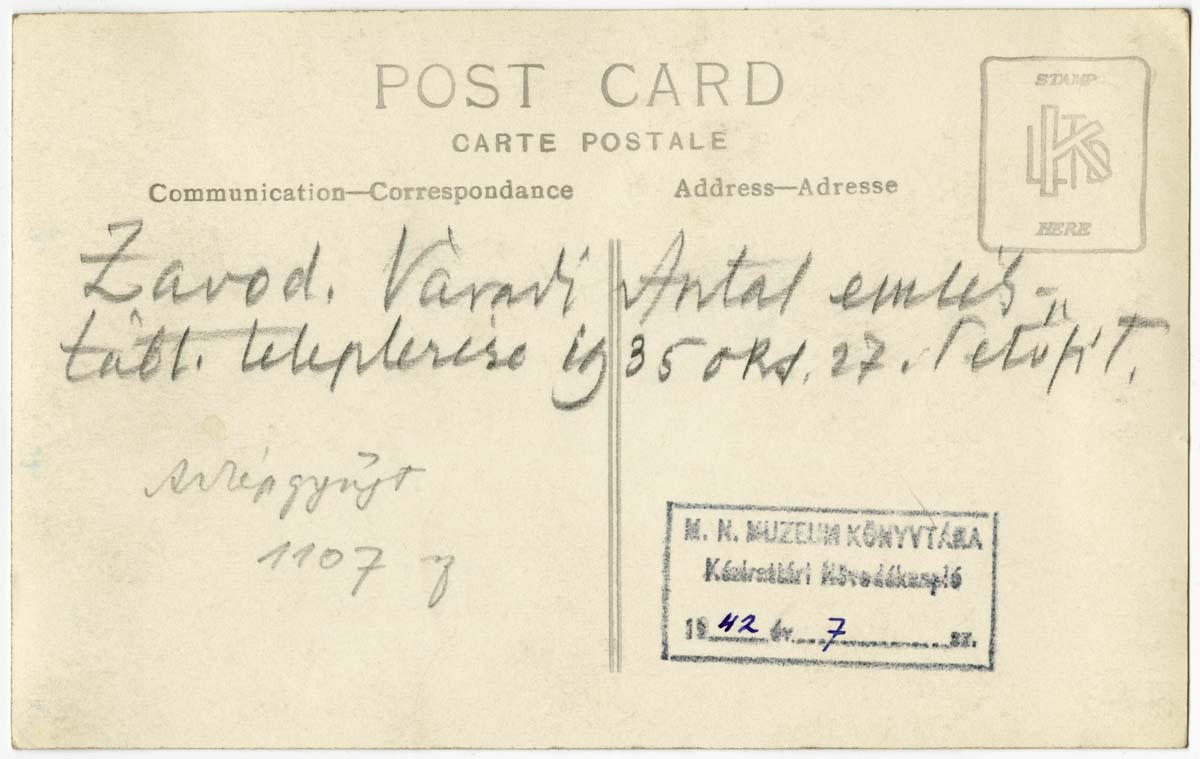 POST CARD
CARTE POSTALE
Communication—Correspondance
Address—Adresse
STAMP
HERE
Zavod. Váradi Antal emlék-
tábl. leleplezése 1935 okt. 27. Petőfi T.
Arcképgyűjt
1107
M. N. MUZEUM KÖNYVTÁRA
Kézirattári Növedéknapló
1942 év 7 sz.